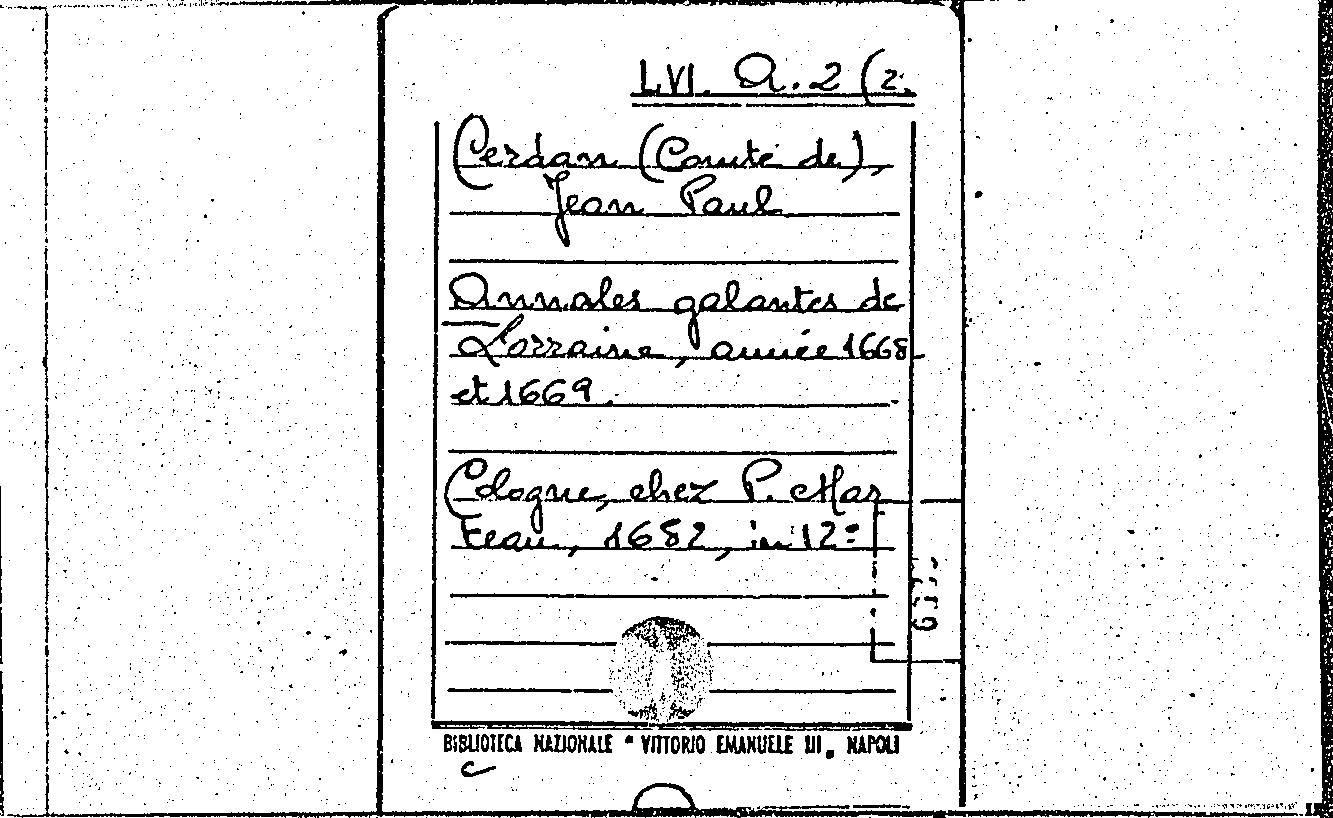 LVI. A. 2 (2.
Cerdan (Comte de),
Jean Paul
Annales galantes de
Lorraine, année 1668
et 1669.
Cologne, chez P. Mar
teau, 1682, in 12º
BIBLIOTECA NAZIONALE " VITTORIO EMANUELE III „ NAPOLI